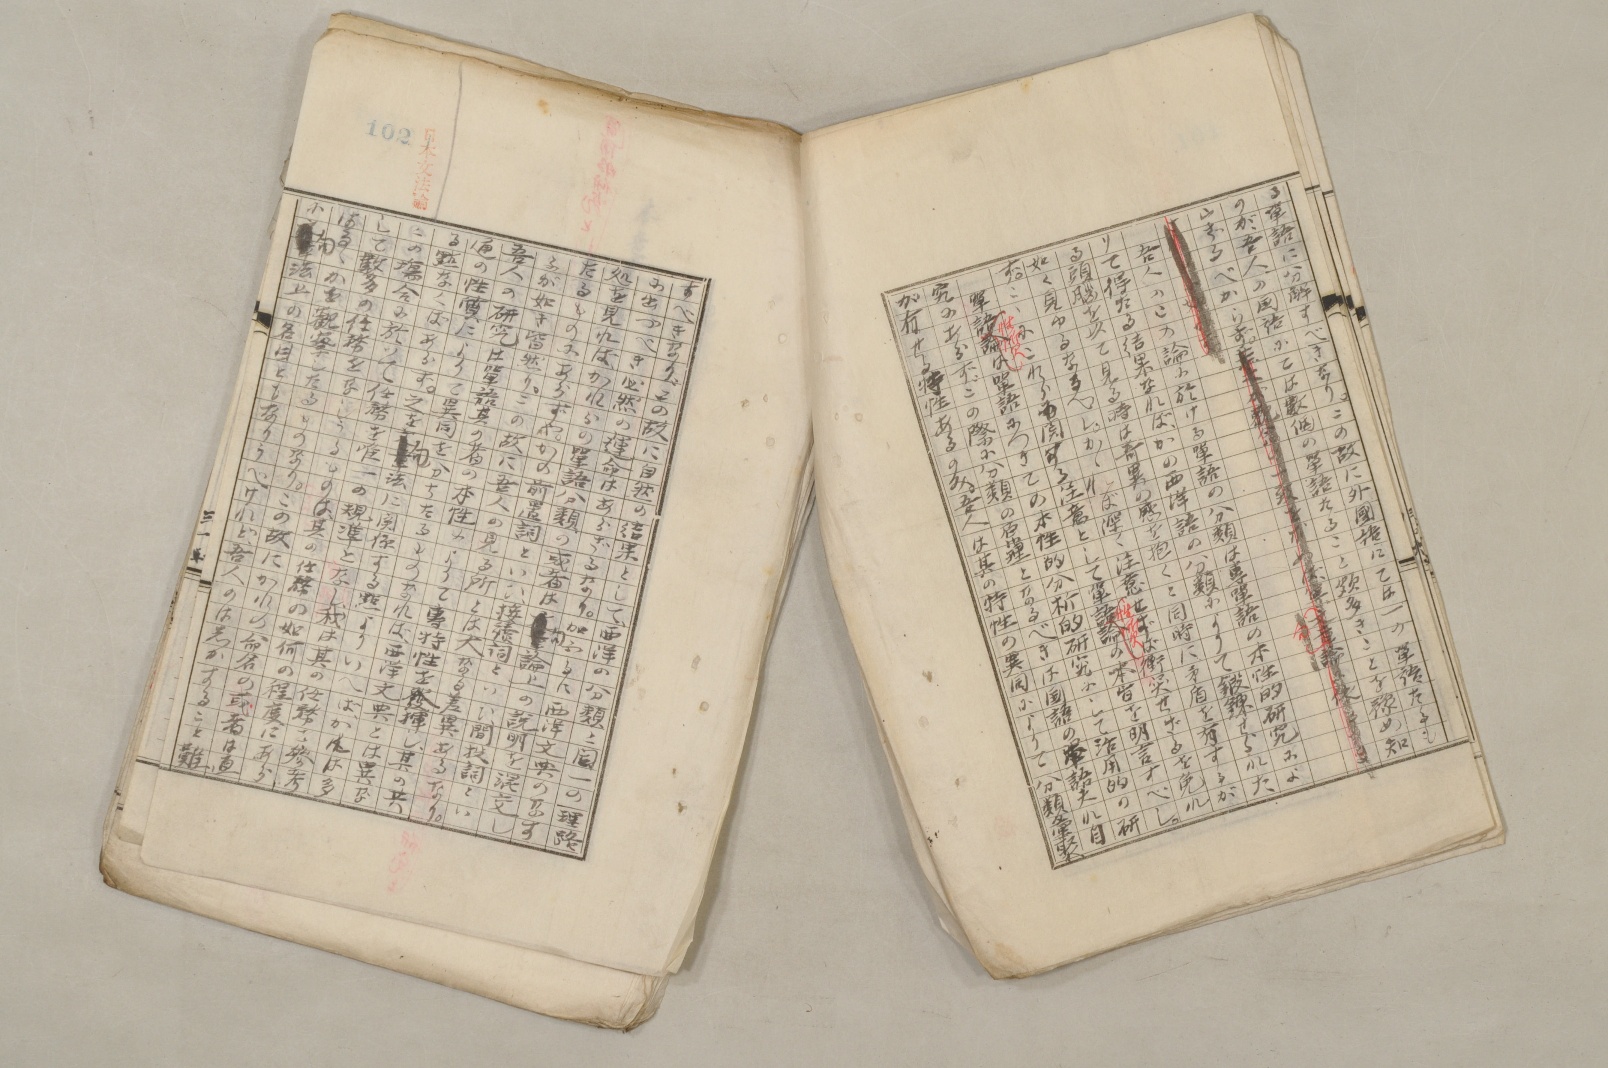 る單語に分解すべきなり。この故に外國語にては一の單語たるも
のが、吾人の國語にては數個の單語たること頗多きことを豫め知
らざるべからず。
吾人のこの論に於ける單語の分類は專單語の本性的研究によ
りて得たる結果なればかの西洋語の分類によりて鍛錬せられた
る頭腦を以て見る時は奇異の感を抱くと同時に矛盾を有するが
如く見ゆるなるべし。かれば深く注意せずば衝突せざるを免れ
ず。こはこれらに関する注意として單語の性質論の本旨を明言すべし。
單語の性質論は單語につきての本性的分析的研究にして活用的の研
究にあらず。この際に分類の原理となるべきは国語の單語夫れ自
が有せる特性あるのみ。吾人は其の特性の異同によりて分類彙聚
すべきなり。この故に自然の結果として西洋の分類と同一の理路
に出づべき必然の運命はあらざるなり。加ふるに西洋文典のなす
処を見ればかれらの單語分類の或者は句論上の説明を混交し
たるものにあらずや。かの前置詞といひ接續詞といひ間投詞とい
ふが如き皆然り。この故に吾人の見る所とは大なる差異あるなり。
吾人の研究は單語其の者の本性によりて專特性を發揮し其の共
通の性質によりて異同をわかちたるものなれば、西洋文典とは異な
る點なくばあらず。之を句法に関係する點よりいへば、かれは多
くの場合に於いて任務を唯一の規準となし、我は其の任務を參考
して數多の任務をなしうるものは、其の任務の如何の程度にあら
はるゝかを觀察したるものなり。この故にかれの命名の或者は直
に句法上の各目ともなりうべけれど、吾人のは志かすること難
102
日本文法論